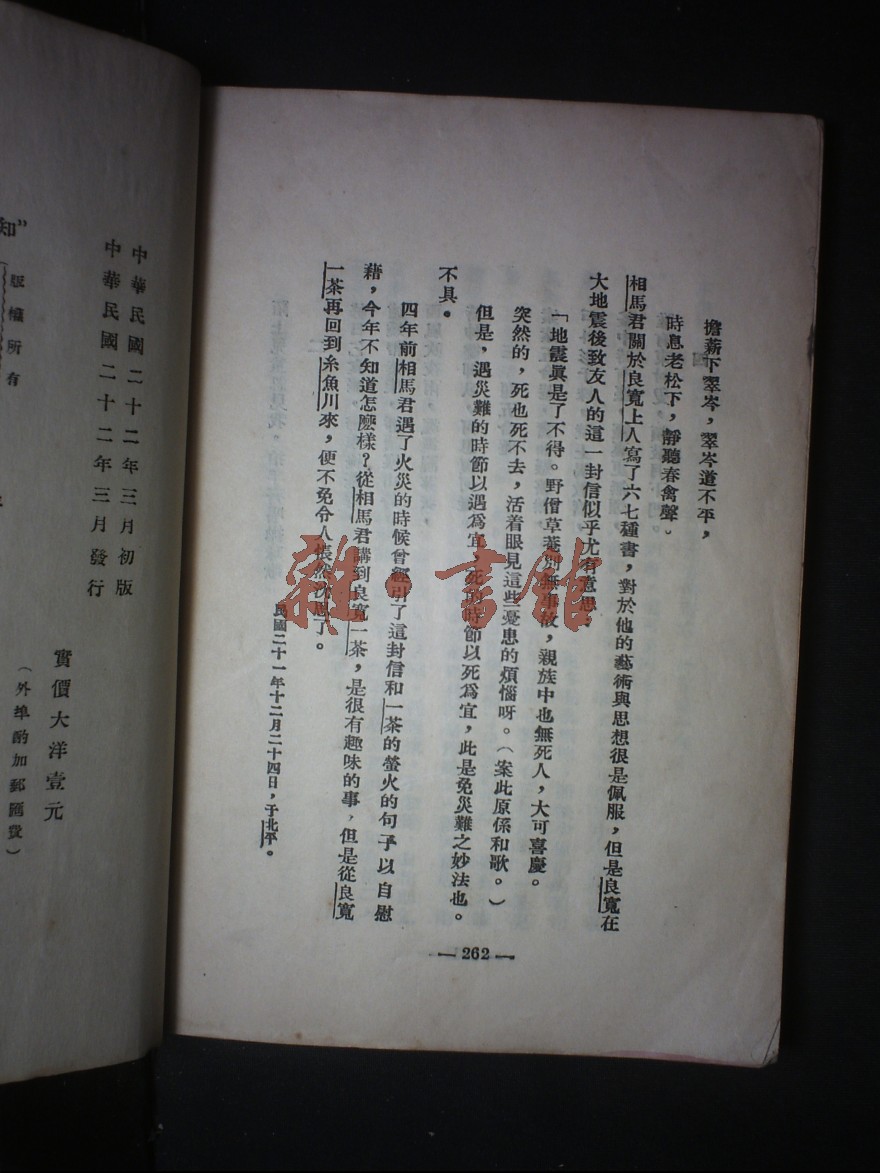 擔薪下翠岑，翠岑道不平，
時息老松下，靜聽春禽聲。
相馬君關於良寬上人寫了六七種書，對於他的藝術與思想很是佩服，但是良寬在
大地震後致友人的這一封信似乎尤有意思：
「地震眞是了不得。野僧草菴別無事故，親族中也無死人，大可喜慶。
突然的，死也死不去，活着眼見這些憂患的煩惱呀。（案此原係和歌。）
但是，遇災難的時節以遇爲宜，死的時節以死爲宜，此是免災難之妙法也。
不具。
四年前相馬君遇了火災的時候曾經引了這封信和一茶的螢火的句子以自慰
藉，今年不知道怎麽樣？從相馬君講到良寬一茶，是很有趣味的事，但是從良寬
一茶再回到糸魚川來，便不免令人悵然沈思了。
民國二十一年十二月二十四日，于北平。
— 262 —
中華民國二十二年三月初版
中華民國二十二年三月發行
實價大洋壹元
（外埠酌加郵匯費）
知”
版權所有
雜·書館